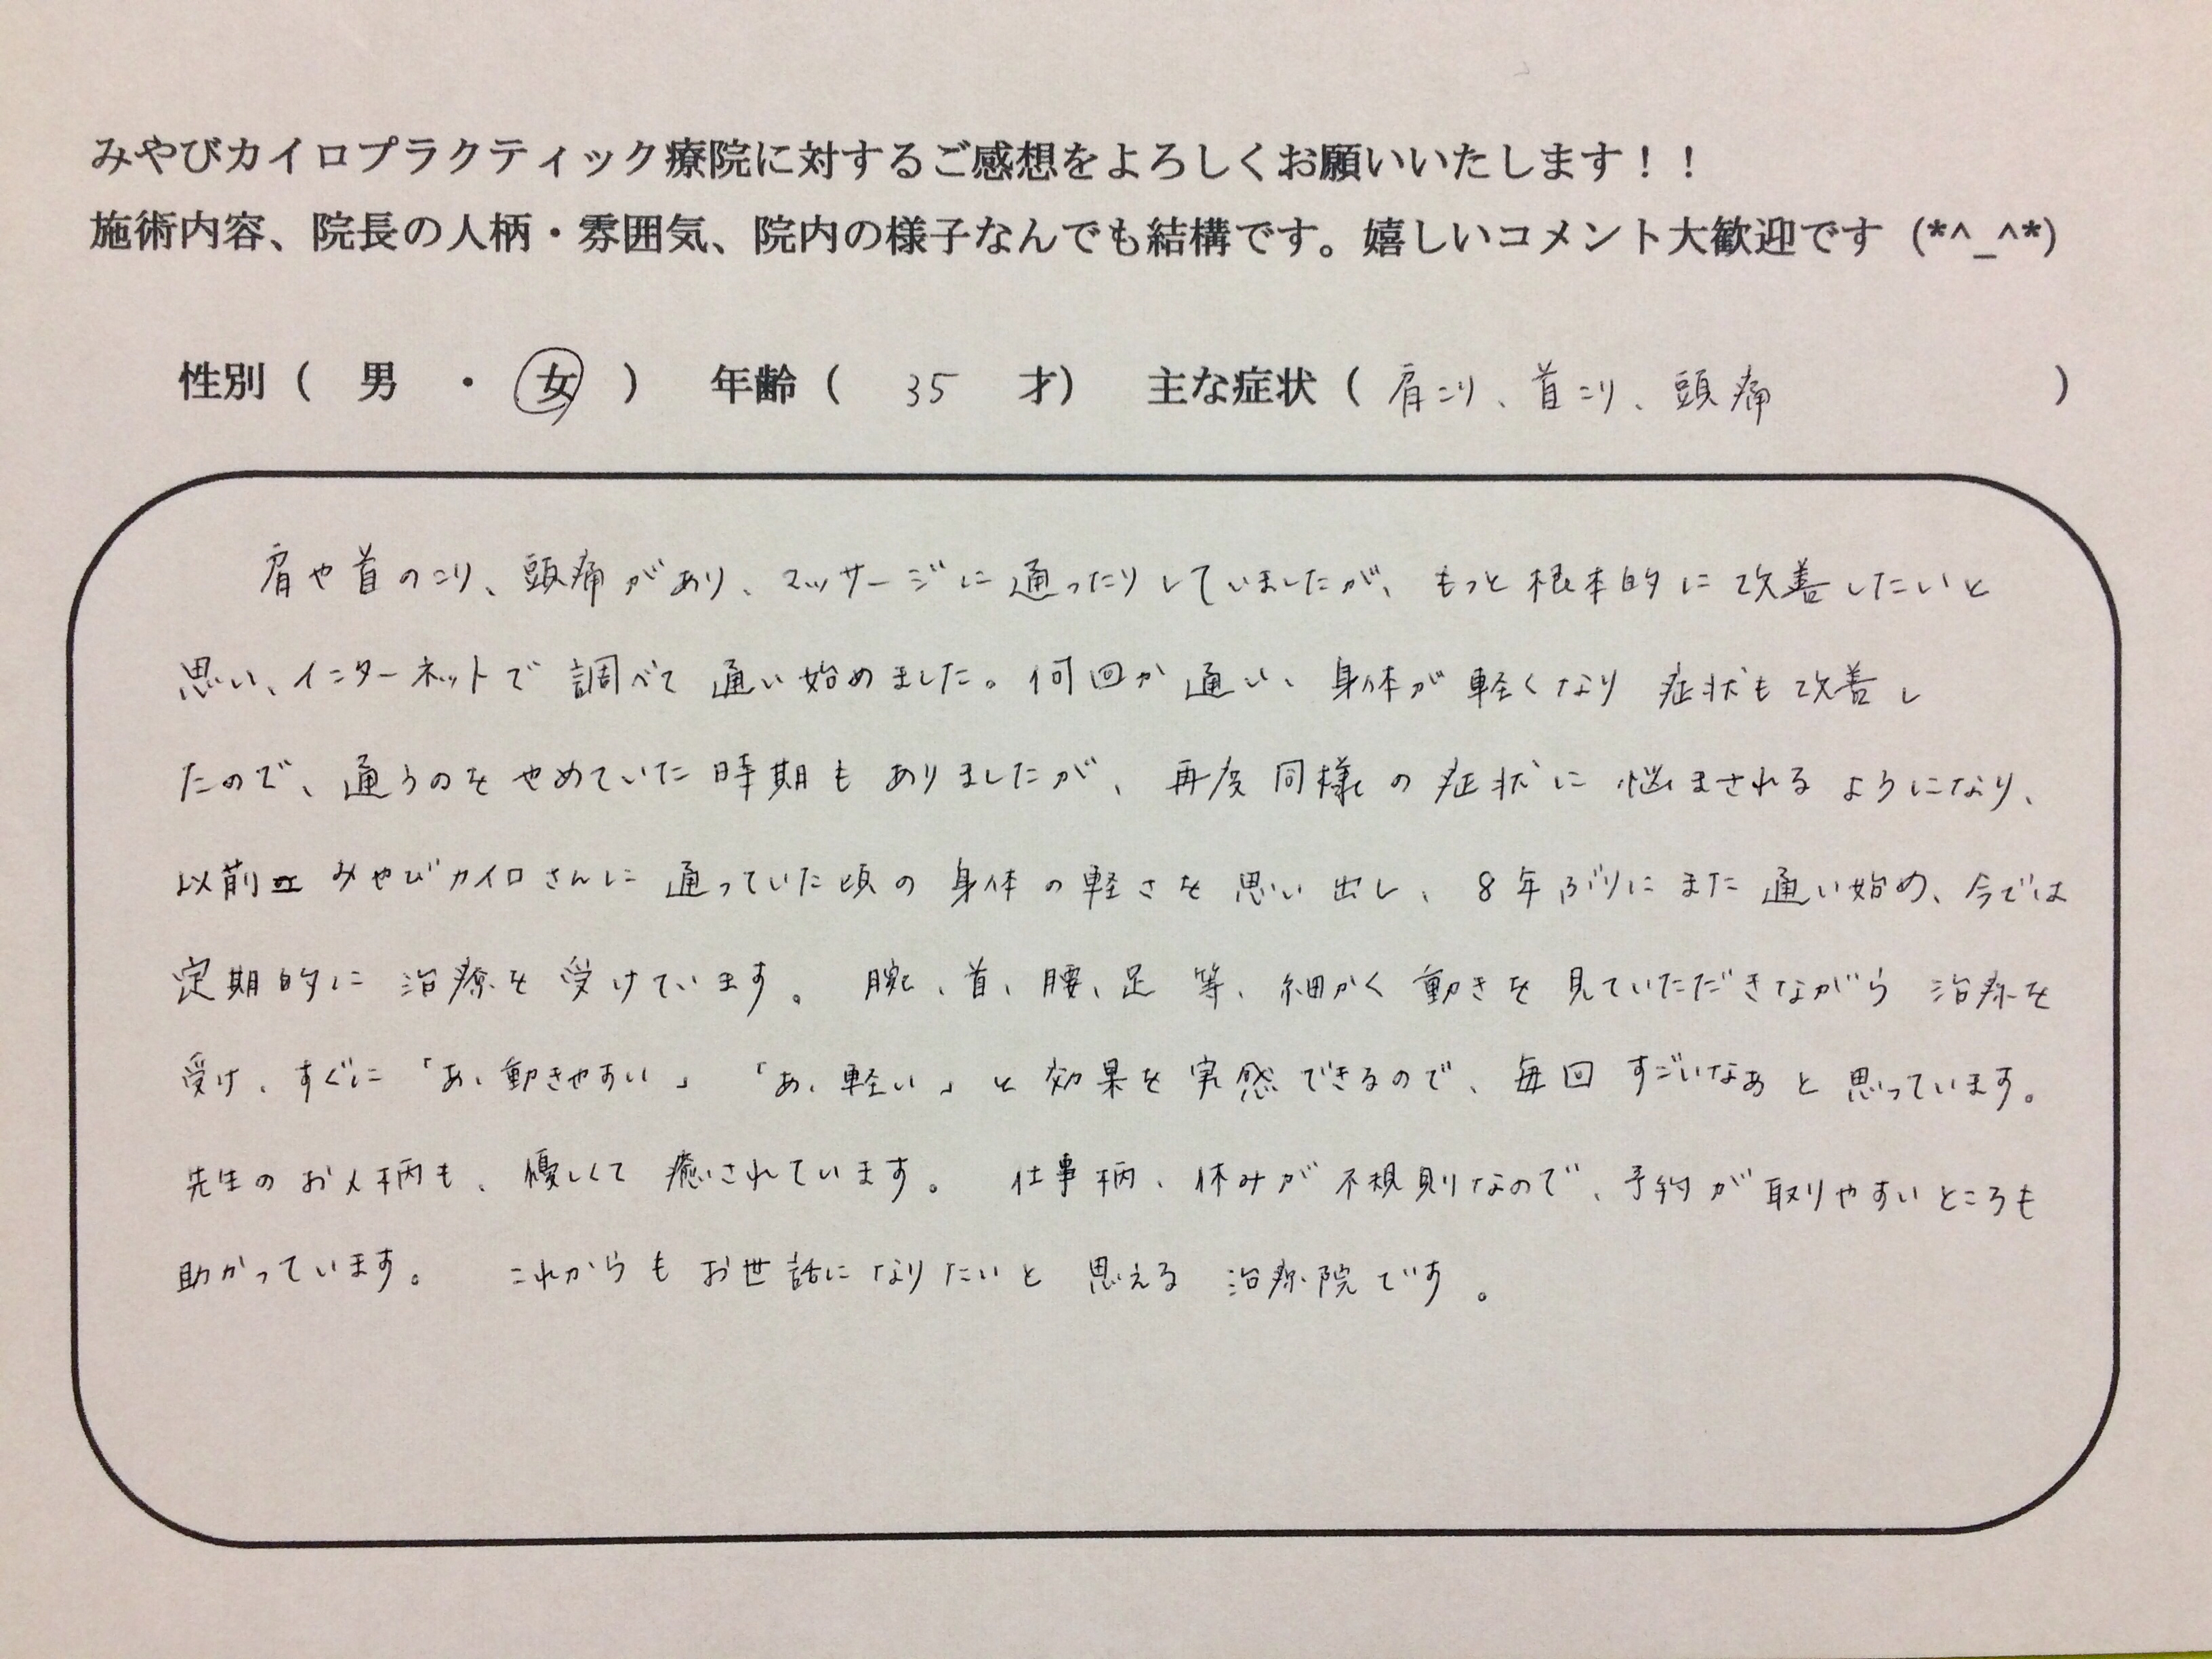 みやびカイロプラクティック療院に対するご感想をよろしくお願いいたします！！
施術内容、院長の人柄・雰囲気、院内の様子なんでも結構です。嬉しいコメント大歓迎です（*^_^*）
性別（　男　・　女　）　年齢（　35　才）　主な症状（肩こり、首こり、頭痛　）
肩や首のこり、頭痛があり、マッサージに通ったりしていましたが、もっと根本的に改善したいと
思い、インターネットで調べて通い始めました。何回か通い、身体が軽くなり症状も改善し
たので、通うのをやめていた時期もありましたが、再度同様の症状に悩まされるようになり、
以前みやびカイロさんに通っていた頃の身体の軽さを思い出し、8年ぶりにまた通い始め、今では
定期的に治療を受けています。腕、首、腰、足等、細かく動きを見ていただきながら治療を
受け、すぐに「あ、動きやすい」「あ、軽い」と効果を実感できるので、毎回すごいなぁと思っています。
先生のお人柄も、優しくて癒されています。仕事柄、休みが不規則なので、予約が取りやすいところも
助かっています。これからもお世話になりたいと思える治療院です。